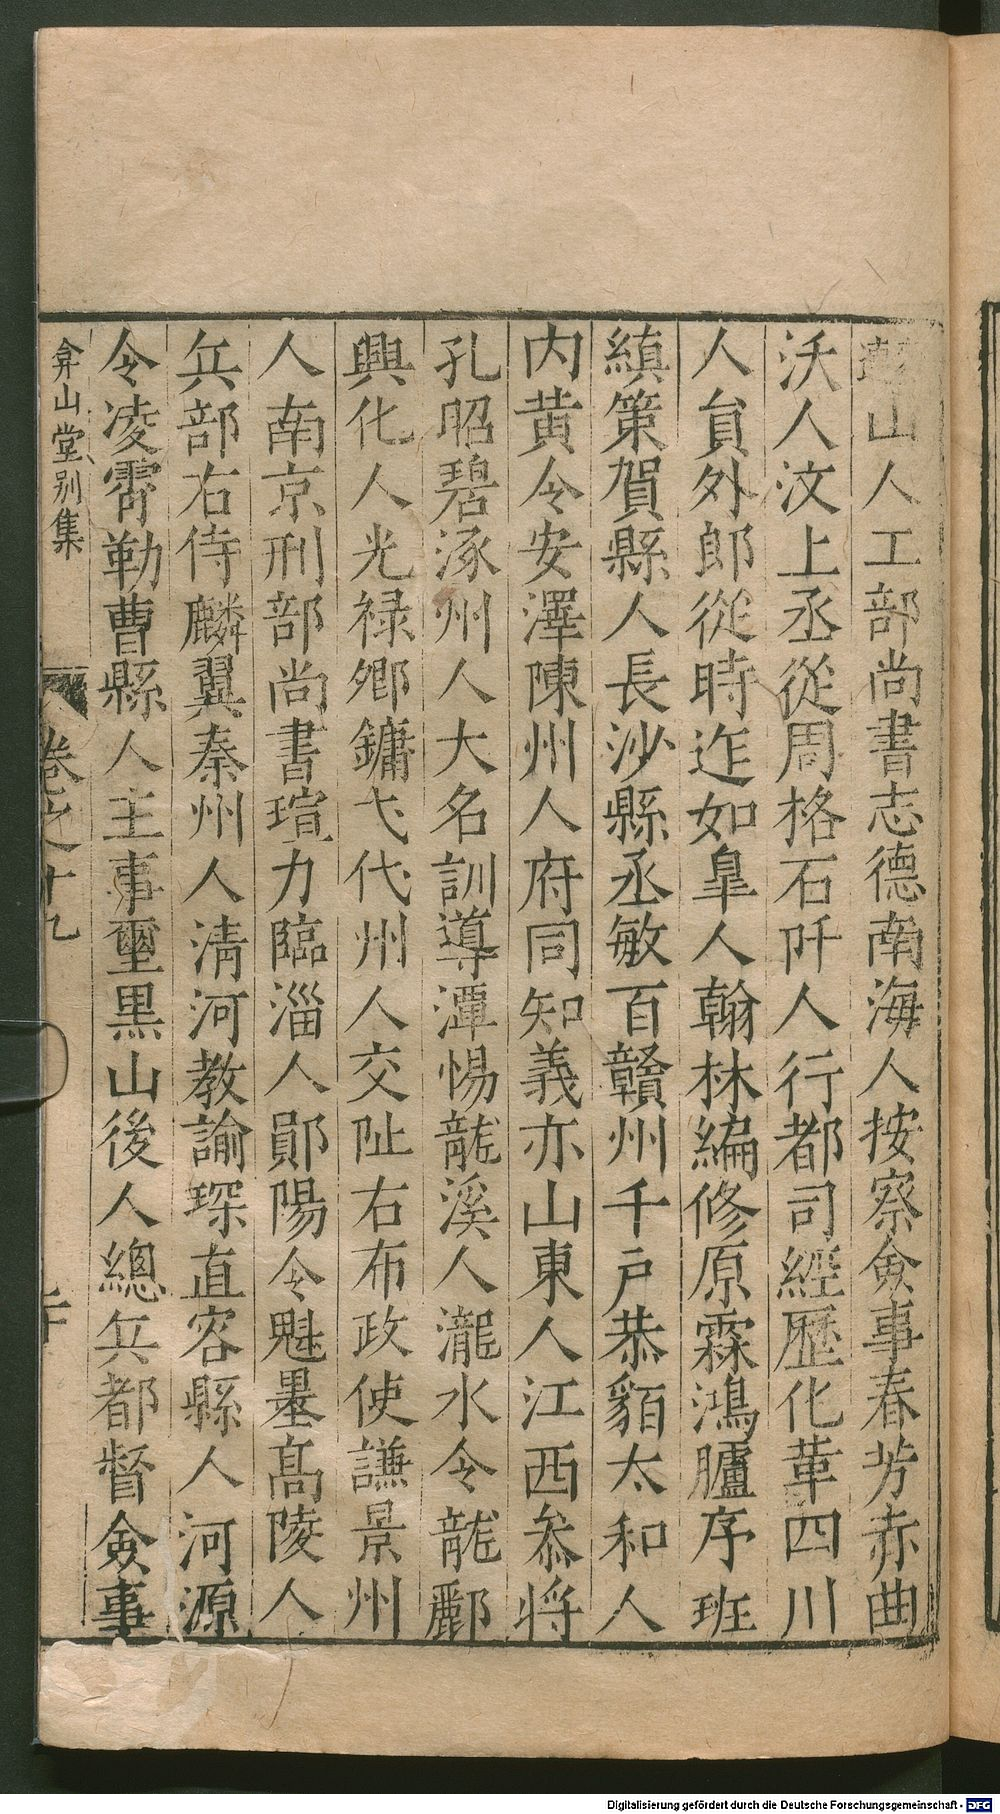 山人工部尚書志德南海人按察僉事春芳赤曲
沃人汶上丞從周格石阡人行都司經歷化葦四川
人員外郎從時迮如臯人翰林編修原霖鴻臚序班
縝策賀縣人長沙縣丞敏百贛州千戶恭貊太和人
内黄令安澤陳州人府同知義亦山東人江西叅将
孔昭碧涿州人大名訓導潭惕龍溪人瀧水令龍酈
興化人光禄鄉鏞弋代州人交阯右布政使謙景州
人南京刑部尚書瑄力臨淄人鄖陽令魁墨高陵人
兵部右侍麟翼秦州人清河教諭琛直容縣人河源
令凌霄勒曹縣人主事璽黒山後人總兵都督僉事
弇山堂别集
卷之十九
二十
Digitalisierung gefördert durch die Deutsche Forschungsgemeinschaft - DFG